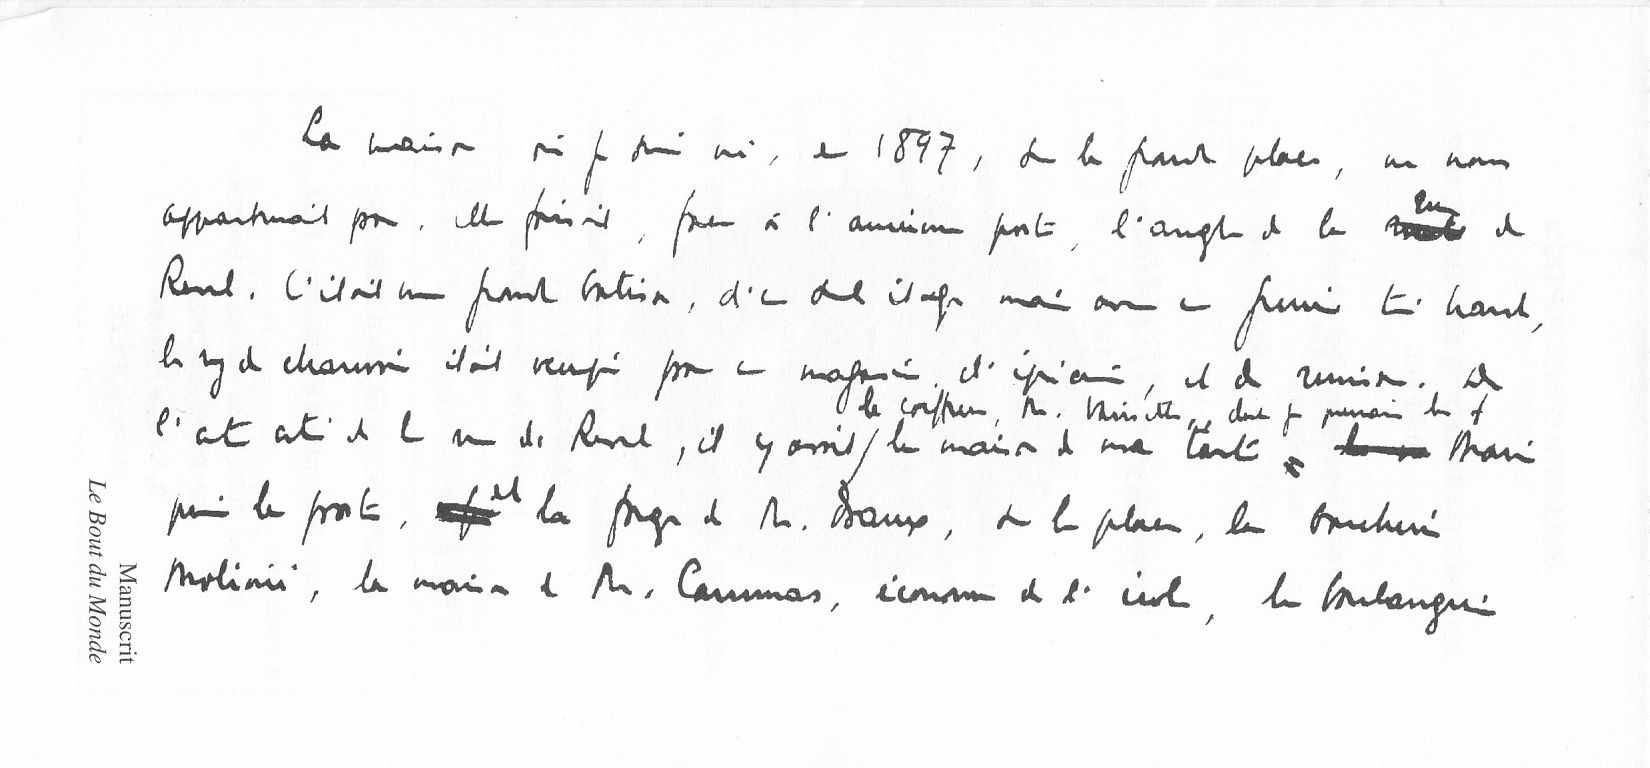 La maison où je suis né, en 1897, sur la grande place, ne nous
appartenait pas. Elle faisait, face à l'ancienne porte, l'angle de la rue de
Revel. C'était une grande bâtisse, d'un seul étage mais avec un grenier très haut,
le rez de chaussée était occupé par un magasin d'épicerie, et de remise. De
le coiffeur, M. dont je
l'autre côté de la rue de Revel, il y avait la maison de ma tante Marie
puis la poste, et la forge de M. sur la place, la boucherie
la maison de M. Cammas, économe de l'école, la boulangerie
Manuscrit
Le Bout du Monde